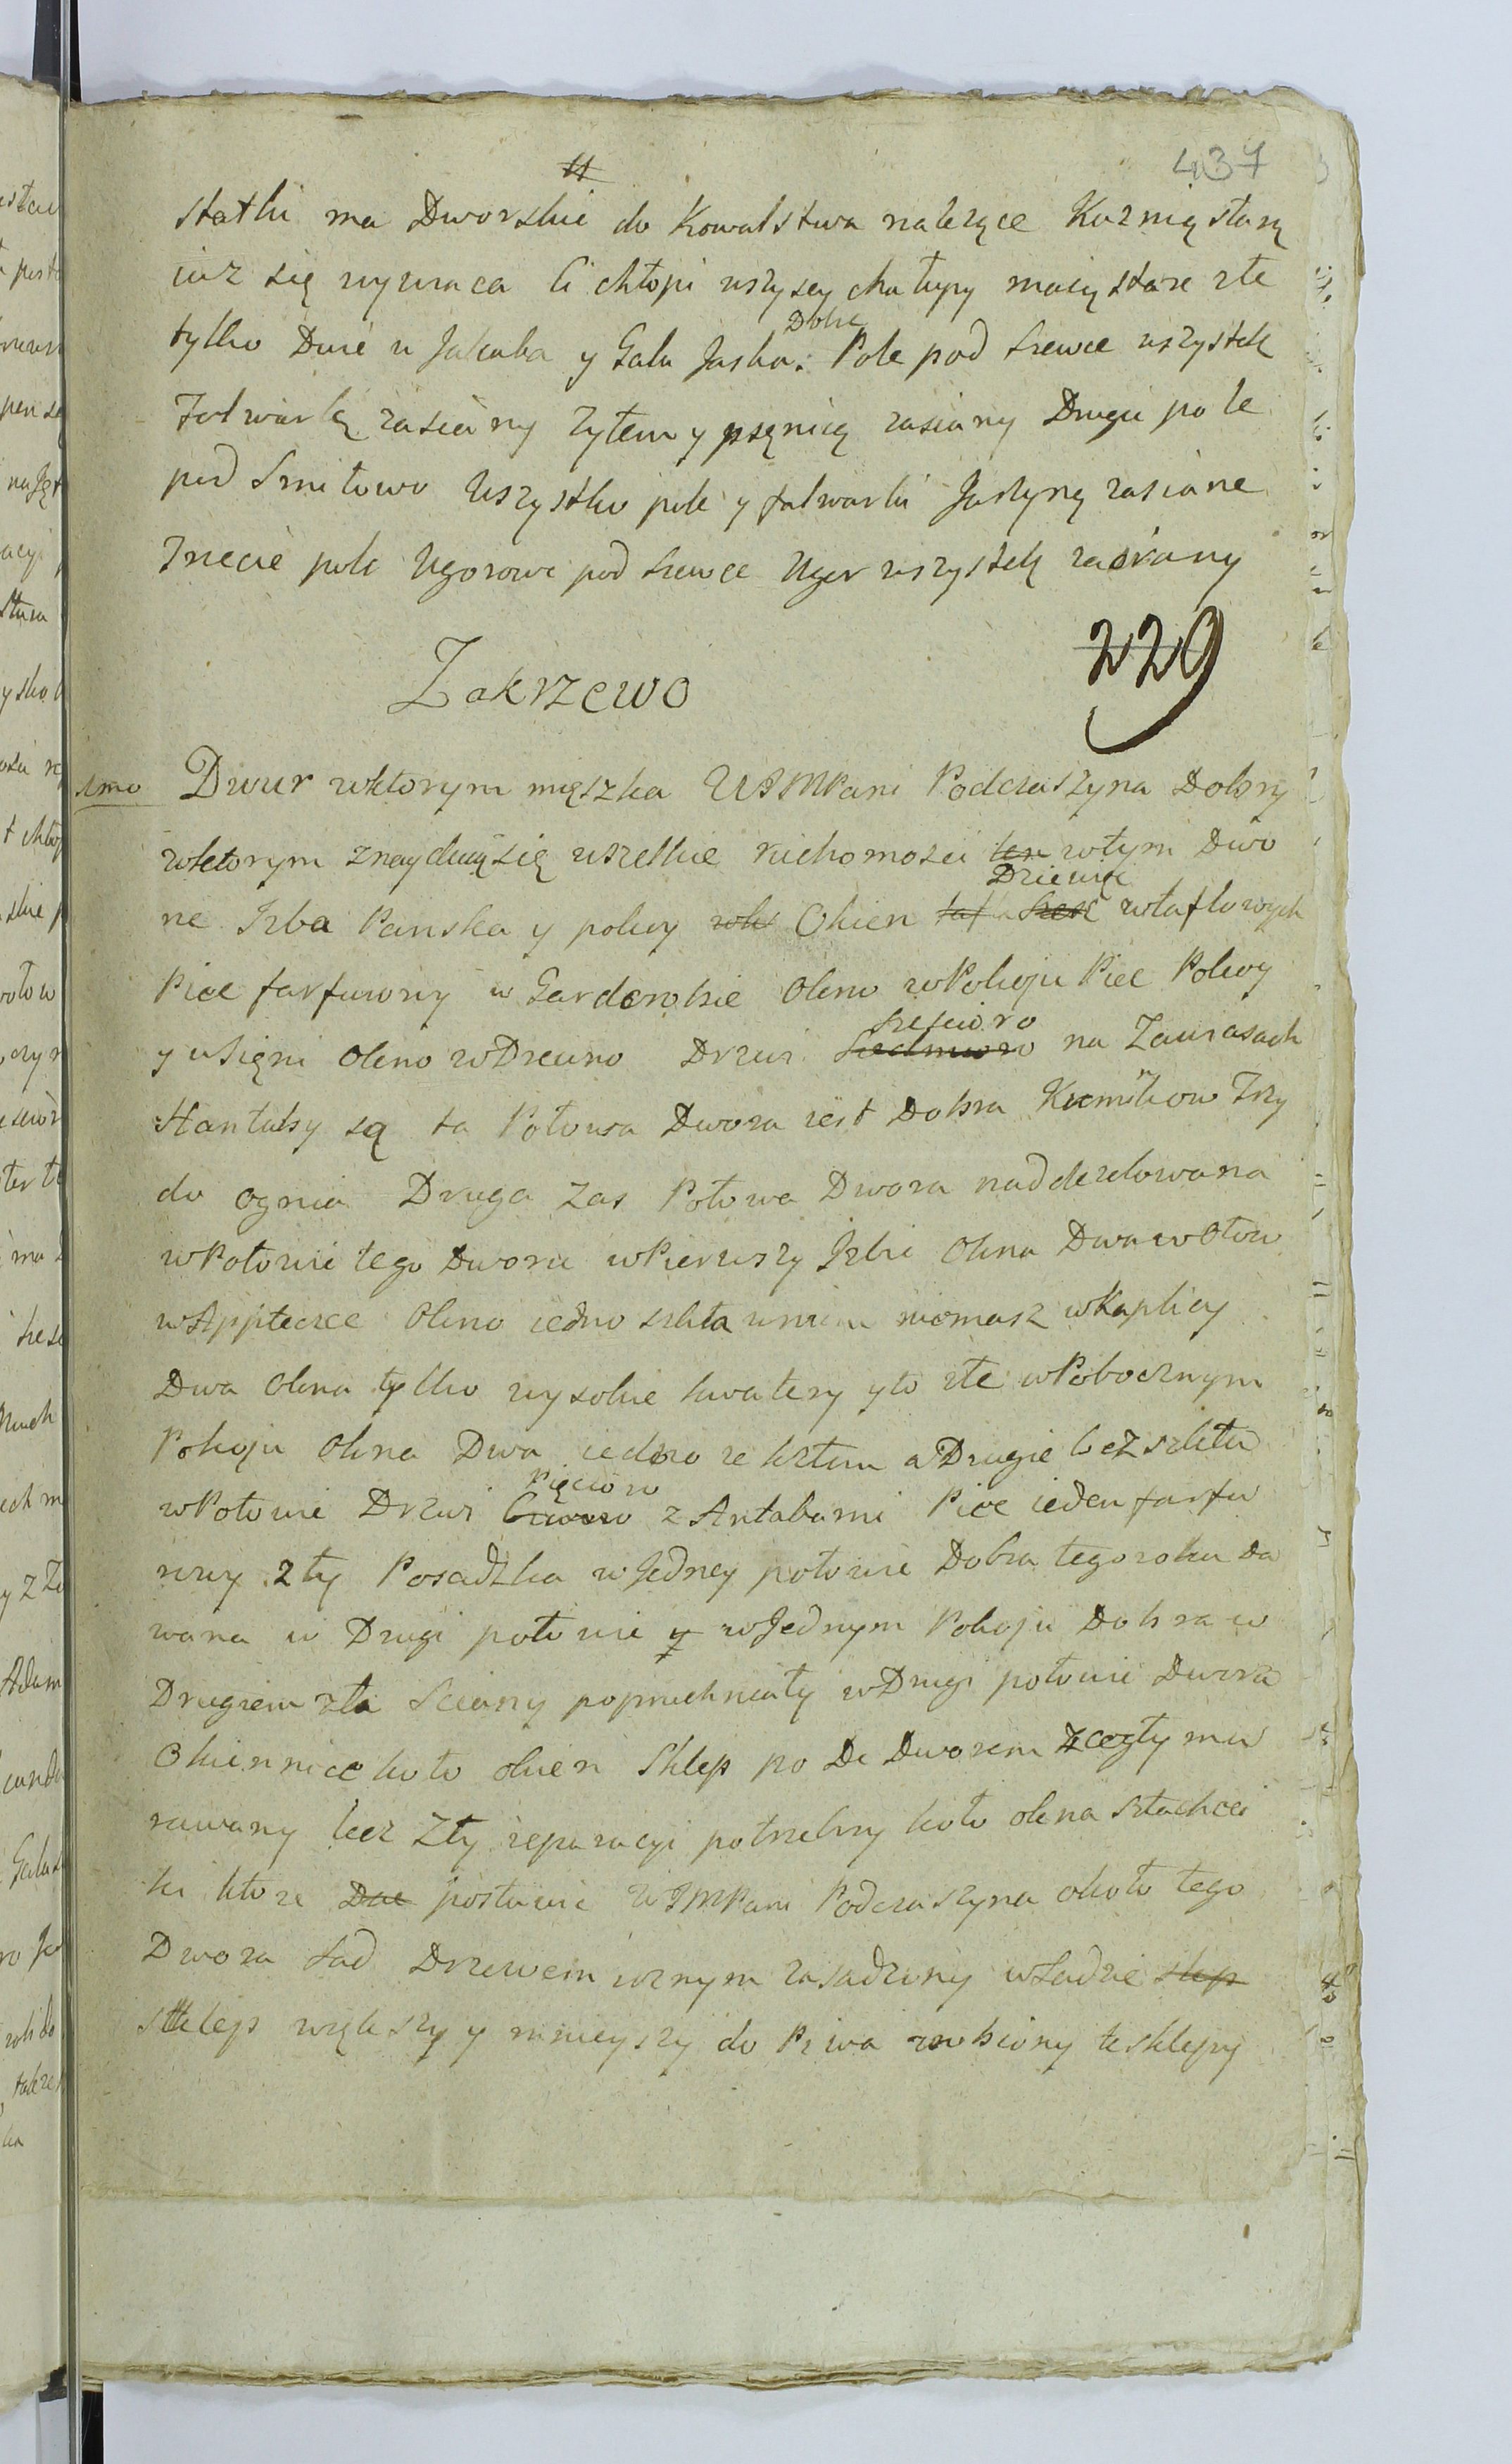 437
statki ma Dworskie do Kowalstwa należące Kuznią starą
iuz się wywraca Ci chłopi wszyscy chałupy maią stare złe
tylko Dwie u Jakuba y Gała Jaska. Dobre Pole pod Szewce wszystek
Folwarkę zasiany Zytem y psęnicą zasiany Drugie pole
pod Smiłowo Wszystko pole y folwarki Jarzyną zasiane
Trzecie pole Ugorowe pod Szewce Ugor wszystek zaorany
229
Zakrzewo
1mo Dwur wktorym mięszka WJMPani Podczaszyna Dobry
wktorym znayduią się wszelkie ruchomosci ten wtym Dwo
rze Izba Panska y pokoy Okien Dziewięc wtaflowych
Piec farfurowy w Garderobie Okno wPokoju Piec Pokoy
y wSięni Okno wDrewno Drzwi Szescioro Siedmioro na Zawiasach
Hantaby są ta Połowa Dwora iest Dobra Kominkow Trzy
do ognia Druga zas Połowa Dwora naddezelowana
wPołowie tego Dworu wPierwszy Izbie Okna Dwa wOłow
wAppteczce Okno iedno szkła wnim niemasz wKaplicy
Dwa Okna tylko wysokie kwatery yto złe wPobocznym
Pokoju Okna Dwa iedno ze szkłem a Drugie bez szkła
wPołowie Drzwi Pięcioro z Antabami Piec ieden farfu
rowy zły Posadzka w Jedney połowie Dobra tego roku da
wana w Drugi połowie y w Jednym Pokoju Dobra w
Drugiem zła Sciany popruchniały w Drugi połowie Dwora
Okiennice koło okien Sklep po De Dworem z cegły mu
rowany lecz Zły reparacyi potrzebny koło okna sztachet
ki ktore Dae postawic WJMPani Podczaszyna około tego
Dwora Sad Drzewem roznym zasadzony wSadzie slep
sklep większy y mnieyszy do Piwa zrobiony te sklepy